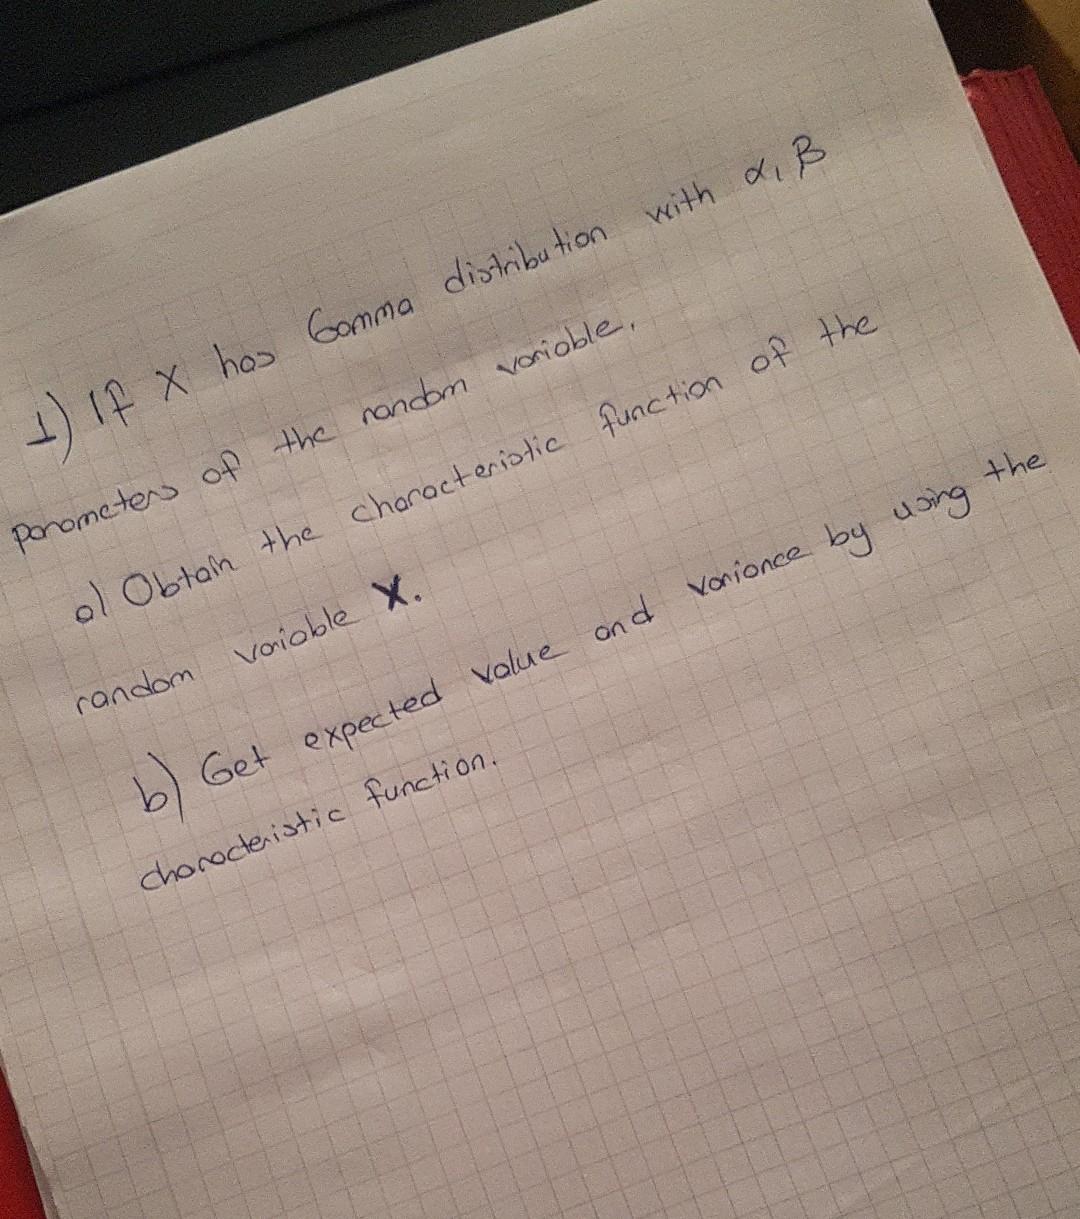 1) If X has Gamma distribution with α, β
parameters of the random variable.
a) Obtain the characteristic function of the
random variable X.
b) Get expected value and variance by using the
characteristic function.